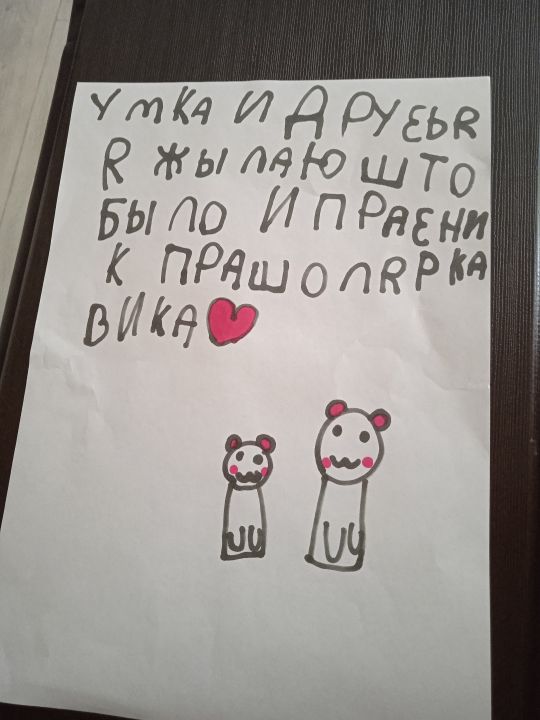 УМКА И ДРУЕЬЯ
Я ЖЫЛАЮ ШТО
БЫЛО И ПРАЕНИ
К ПРАШОЛ ЯРКА
ВИКА